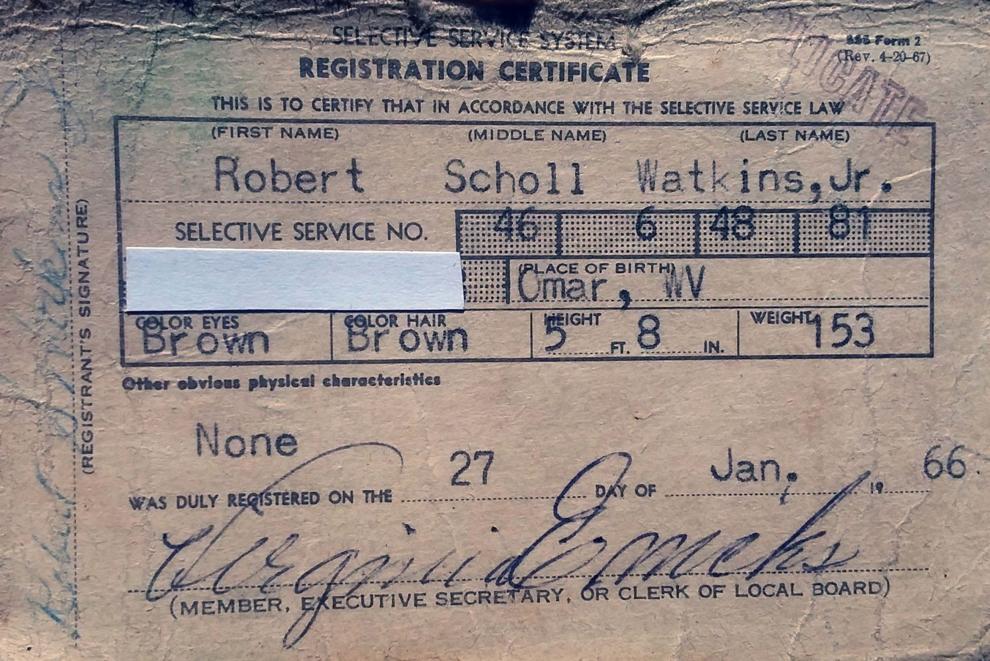 SELECTIVE SERVICE SYSTEM
SSS Form 2
(Rev. 4-20-67)
REGISTRATION CERTIFICATE
THIS IS TO CERTIFY THAT IN ACCORDANCE WITH THE SELECTIVE SERVICE LAW
(FIRST NAME) (MIDDLE NAME) (LAST NAME)
Robert Scholl Watkins,Jr.
SELECTIVE SERVICE NO. 46 6 48 81
(PLACE OF BIRTH)
Omar, WV
COLOR EYES COLOR HAIR HEIGHT WEIGHT
Brown Brown 5 FT. 8 IN. 153
Other obvious physical characteristics
None
WAS DULY REGISTERED ON THE 27 DAY OF Jan. 19 66.
Virginia
(MEMBER, EXECUTIVE SECRETARY, OR CLERK OF LOCAL BOARD)
(REGISTRANT'S SIGNATURE)
Robert S Watkins